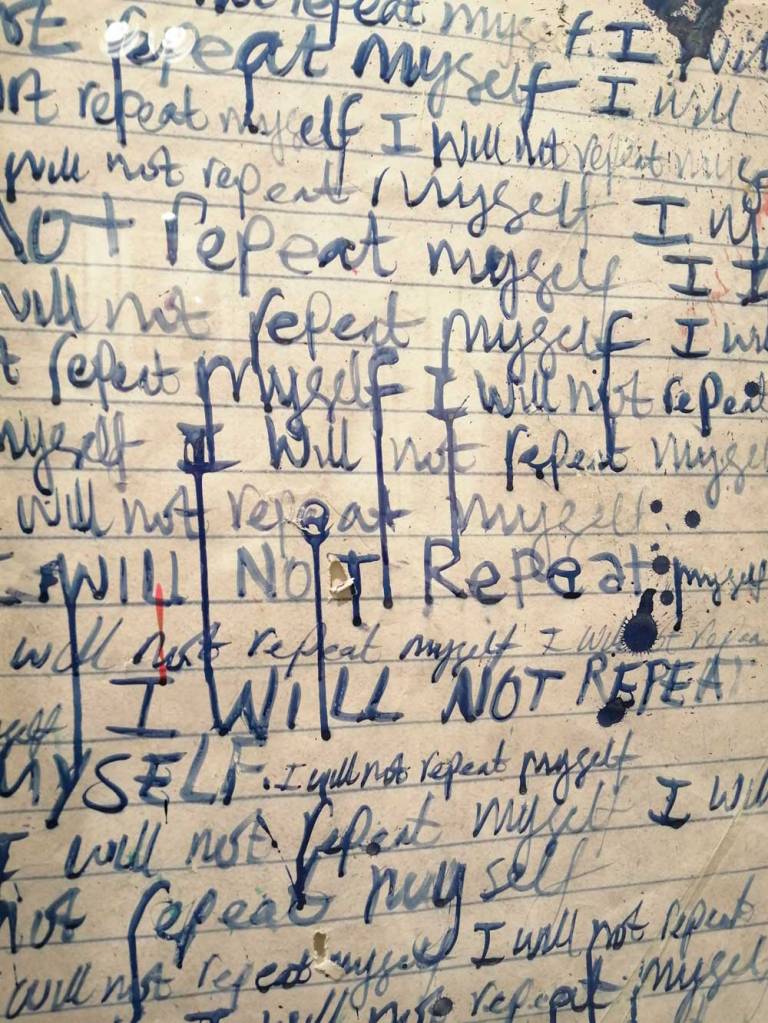 not repeat myself. I will
repeat myself I will
not repeat myself I Will not repeat myse
will not repeat myself I w
Not repeat myself I I
will not repeat myself I wi
t repeat myself I will not repeat
myself I Will not repeat mysel
will not repeat myself.
I WILL NOT Repeat myself
will not repeat myself I will not repea
self I WILL NOT REPEAT
MYSELF. I will not repeat myself
I will not repeat myself I will
not repeat myself I will not repeat
will not repeat myself I will not repeat myself